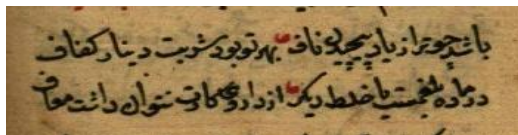 باشد چو ترا ز باد پیچیدن ناف بهر تو بود شربت دینار کفاف
در ماده بلغمیست یا خلط دیگر از داروی کمونی نتوان داشت معاف